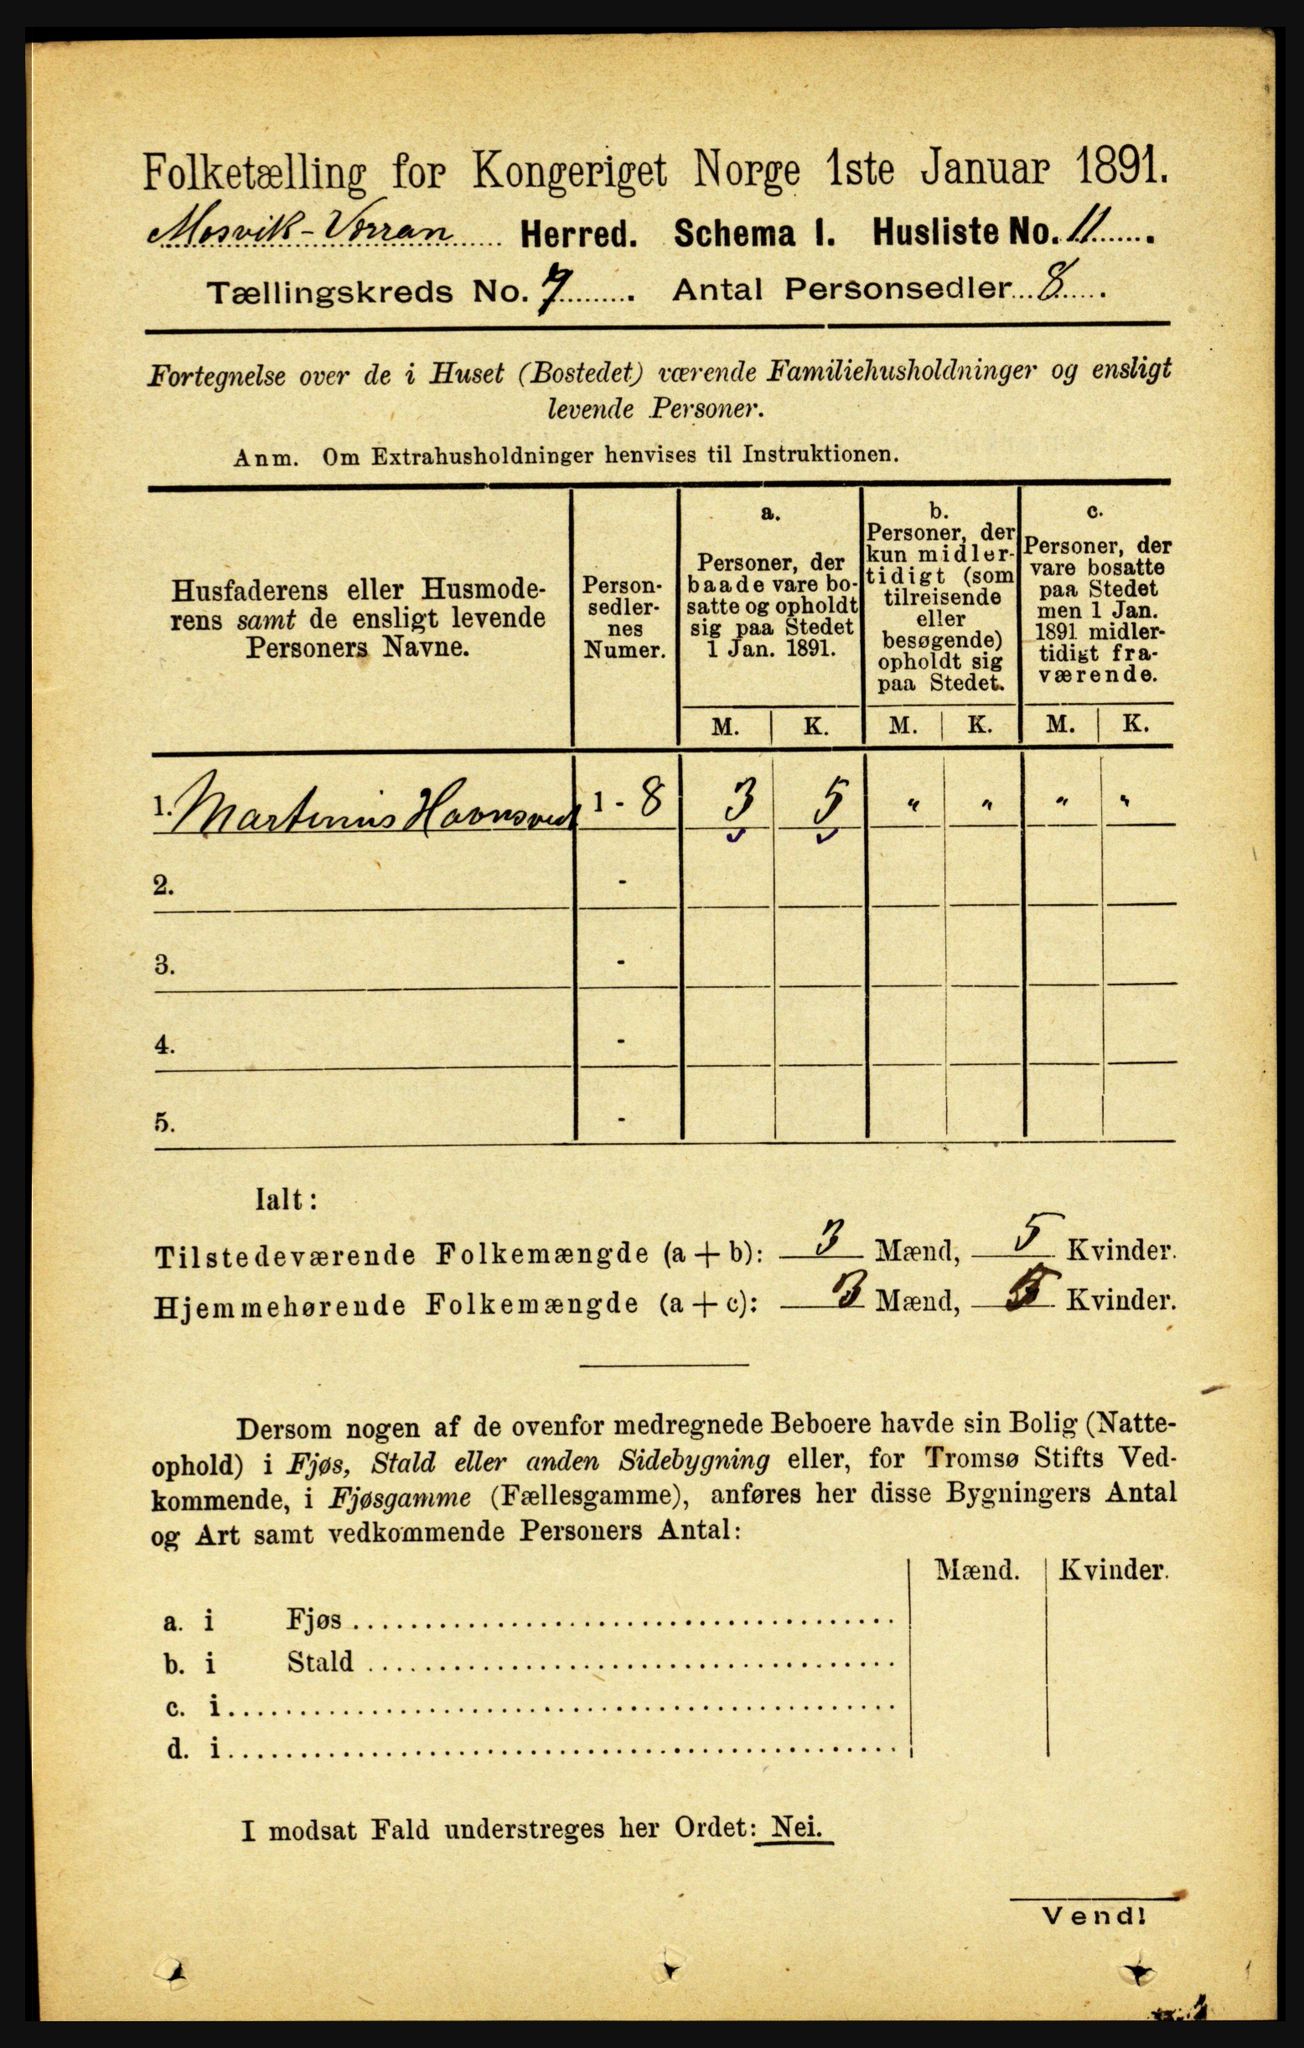 Folketælling for Kongeriget Norge 1ste Januar 1891.
Mosvik-Verran Herred. Schema I. Husliste No. 11.
Tællingskreds No. 7. Antal Personsedler 8.
Fortegnelse over de i Huset (Bostedet) værende Familiehusholdninger og ensligt
levende Personer.
Anm. Om Extrahusholdninger henvises til Instruktionen.
Husfaderens eller Husmode-
rens samt de ensligt levende
Personers Navne.
Person-
sedler-
nes
Numer.
a.
Personer, der
baade vare bo-
satte og opholdt
sig paa Stedet
1 Jan. 1891.
b.
Personer, der
kun midler-
tidigt (som
tilreisende
eller
besøgende)
opholdt sig
paa Stedet.
c.
Personer, der
vare bosatte
paa Stedet
men 1 Jan.
1891 midler-
tidigt fra-
værende.
M. K. M. K. M. K.
1. Martinius 1 - 8 3 5 " " " "
2. -
3. -
4. -
5. -
Ialt:
Tilstedeværende Folkemængde (a + b): 3 Mænd, 5 Kvinder.
Hjemmehørende Folkemængde (a + c): 3 Mænd, 5 Kvinder.
Dersom nogen af de ovenfor medregnede Beboere havde sin Bolig (Natte-
ophold) i Fjøs, Stald eller anden Sidebygning eller, for Tromsø Stifts Ved-
kommende, i Fjøsgamme (Fællesgamme), anføres her disse Bygningers Antal
og Art samt vedkommende Personers Antal:
Mænd. Kvinder.
a. i Fjøs
b. i Stald
c. i
d. i
I modsat Fald understreges her Ordet: Nei.
Vend!